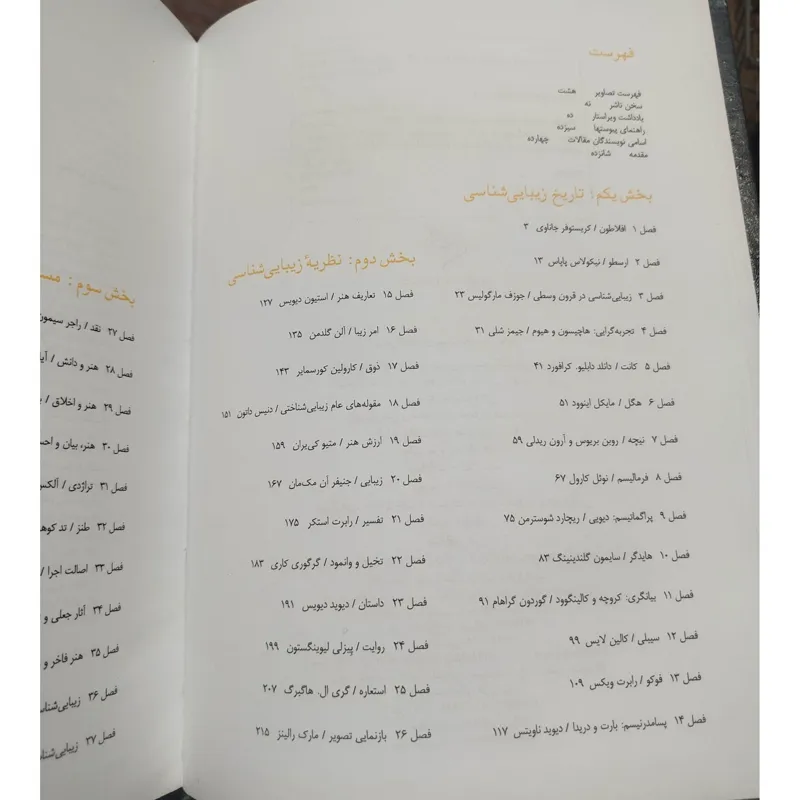 فهرست
فهرست تصاویر هشت
سخن ناشر نه
یادداشت ویراستار ده
راهنمای پیوستها سیزده
اسامی نویسندگان مقالات چهارده
مقدمه شانزده
بخش یکم: تاریخ زیبایی‌شناسی
فصل ۱ افلاطون / کریستوفر جاناوی ۳
فصل ۲ ارسطو / نیکولاس پاپاس ۱۳
فصل ۳ زیبایی‌شناسی در قرون وسطی / جوزف مارگولیس ۲۳
فصل ۴ تجربه‌گرایی: هاچیسون و هیوم / جیمز شلی ۳۱
فصل ۵ کانت / دانلد دابلیو. کرافورد ۴۱
فصل ۶ هگل / مایکل اینوود ۵۱
فصل ۷ نیچه / روبن بریوس و آرون ریدلی ۵۹
فصل ۸ فرمالیسم / نوئل کارول ۶۷
فصل ۹ پراگماتیسم: دیویی / ریچارد شوسترمن ۷۵
فصل ۱۰ هایدگر / سایمون گلندینینگ ۸۳
فصل ۱۱ بیانگری: کروچه و کالینگوود / گوردون گراهام ۹۱
فصل ۱۲ سیبلی / کالین لایس ۹۹
فصل ۱۳ فوکو / رابرت ویکس ۱۰۹
فصل ۱۴ پسامدرنیسم: بارت و دریدا / دیوید ناویتس ۱۱۷
بخش دوم: نظریهٔ زیبایی‌شناسی
فصل ۱۵ تعاریف هنر / استیون دیویس ۱۲۷
فصل ۱۶ امر زیبا / آلن گلدمن ۱۳۵
فصل ۱۷ ذوق / کارولین کورسمایر ۱۴۳
فصل ۱۸ مقوله‌های عام زیبایی‌شناختی / دنیس داتون ۱۵۱
فصل ۱۹ ارزش هنر / متیو کی‌یران ۱۵۹
فصل ۲۰ زیبایی / جنیفر آن مک‌مان ۱۶۷
فصل ۲۱ تفسیر / رابرت استکر ۱۷۵
فصل ۲۲ تخیل و وانمود / گرگوری کاری ۱۸۳
فصل ۲۳ داستان / دیوید دیویس ۱۹۱
فصل ۲۴ روایت / پیزلی لیوینگستون ۱۹۹
فصل ۲۵ استعاره / گری ال. هاگبرگ ۲۰۷
فصل ۲۶ بازنمایی تصویر / مارک رالینز ۲۱۵
بخش سوم: مس
فصل ۲۷ نقد / راجر سیمون
فصل ۲۸ هنر و دانش / آیا
فصل ۲۹ هنر و اخلاق /
فصل ۳۰ هنر، بیان و احس
فصل ۳۱ تراژدی / آلکس
فصل ۳۲ طنز / تد کوه
فصل ۳۳ اصالت اجرا /
فصل ۳۴ آثار جعلی و
فصل ۳۵ هنر فاخر و
فصل ۳۶ زیبایی‌شناس
فصل ۳۷ زیبایی‌شنا